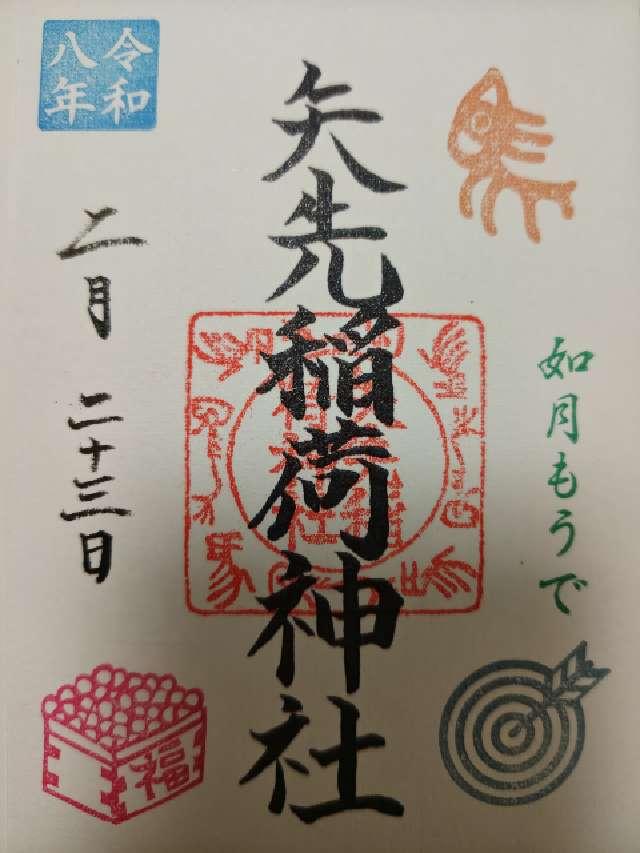 如月もうで
矢先稲荷神社
令和
八年
二月 二十三日
福